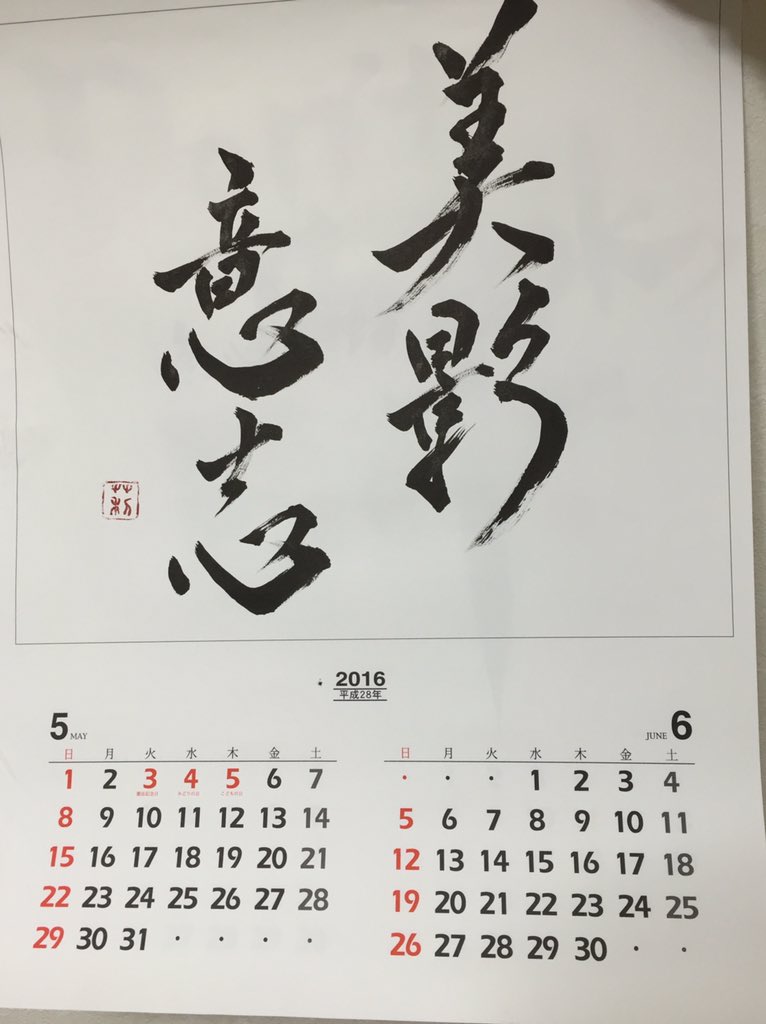 美影
意志
2016
平成28年
5 MAY
日 月 火 水 木 金 土
1 2 3 4 5 6 7
憲法記念日 みどりの日 こどもの日
8 9 10 11 12 13 14
15 16 17 18 19 20 21
22 23 24 25 26 27 28
29 30 31 · · · ·
JUNE 6
日 月 火 水 木 金 土
· · · 1 2 3 4
5 6 7 8 9 10 11
12 13 14 15 16 17 18
19 20 21 22 23 24 25
26 27 28 29 30 · ·